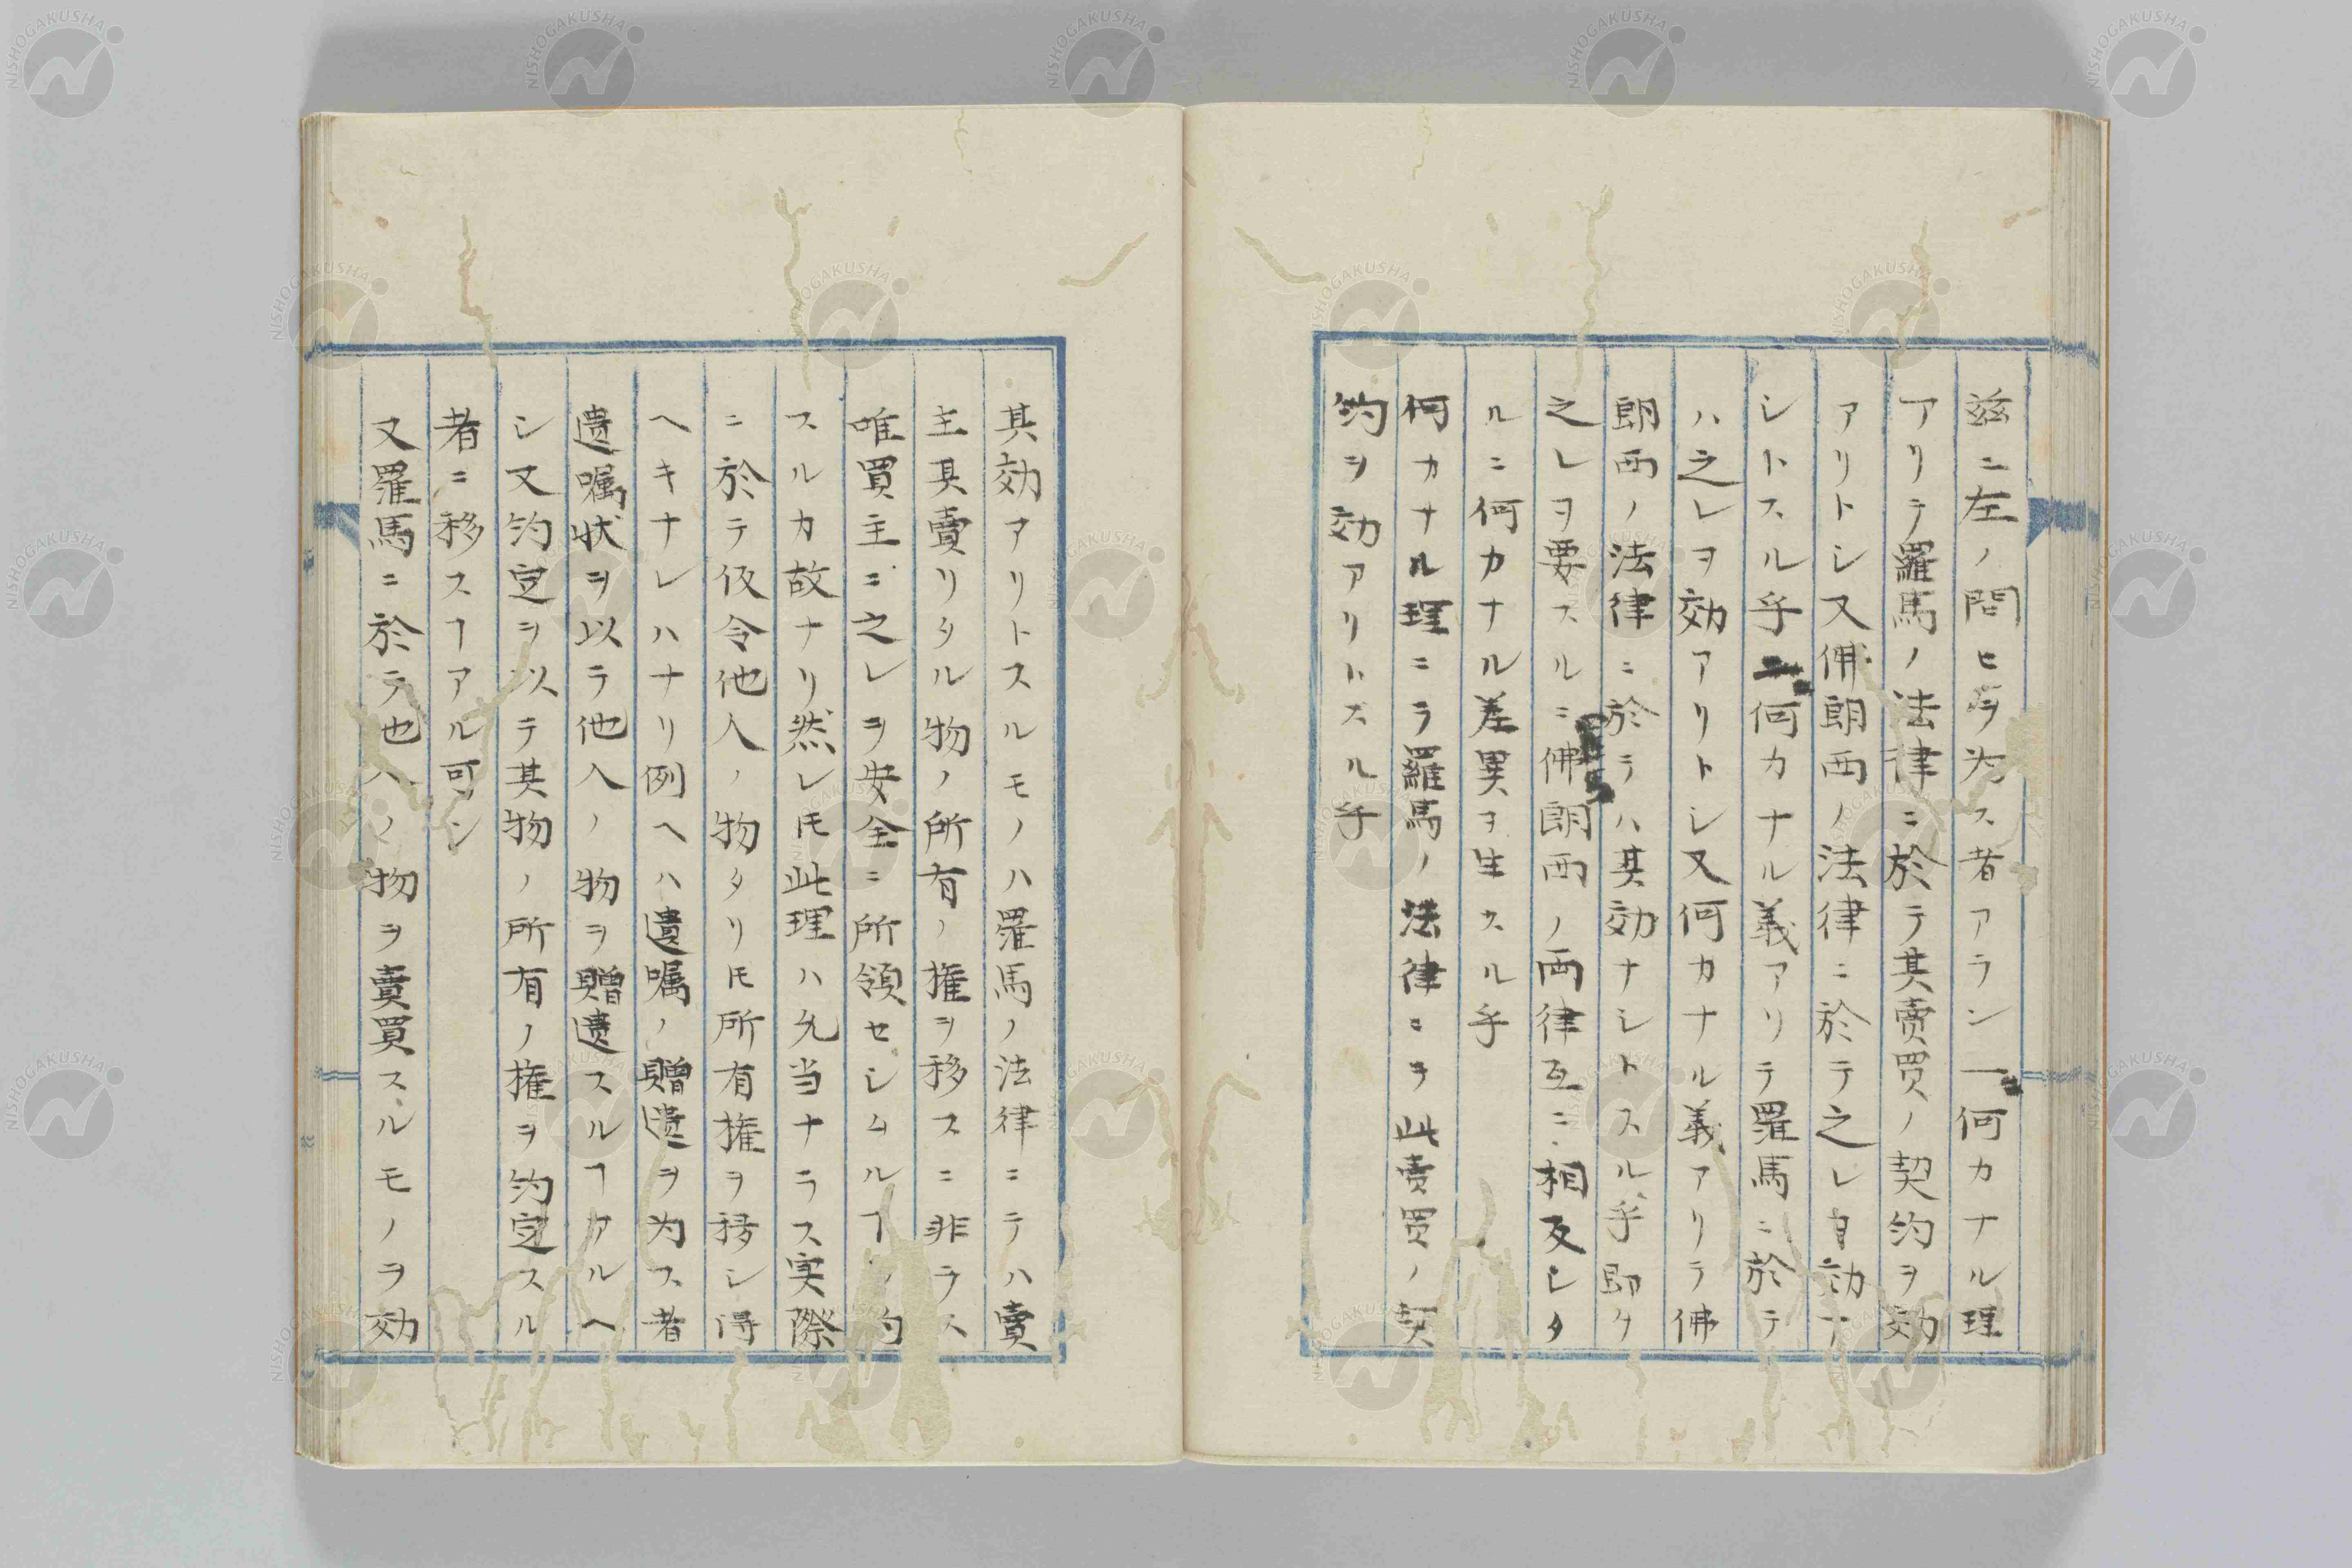 茲ニ左ノ問ヒヲ為ス者アラン一何カナル理
アリテ羅馬ノ法律ニ於テ其賣買ノ契約ヲ効
アリトシ又佛朗西ノ法律ニ於テ之レヲ効ナ
シトスル乎二何カナル義アリテ羅馬ニ於テ
ハ之レヲ効アリトシ又何カナル義アリテ佛
朗西ノ法律ニ於テハ其効ナシトスル乎即ケ
之レヲ要スルニ佛朗西ノ両律互ニ相反シタ
ルニ何カナル差異ヲ生スル乎
何カナル理ニテ羅馬ノ法律ニヲ此賣買ノ契
約ヲ効アリトスル乎
其効アリトスルモノハ羅馬ノ法律ニテハ賣
主其賣リタル物ノ所有ノ権ヲ移スニ非ラス
唯買主ニ之レヲ安全ニ所領セシムルヿヲ約
スルカ故ナリ然レ𪜈此理ハ允当ナラス実際
ニ於テ仮令他人ノ物タリ𪜈所有権ヲ移シ得
ヘキナレハナリ例ヘハ遺嘱ノ贈遺ヲ為ス者
遺嘱状ヲ以テ他人ノ物ヲ贈遺スルヿアルヘ
シ又約定ヲ以テ其物ノ所有ノ権ヲ約定スル
者ニ移スヿアル可シ
又羅馬ニ於テ他人ノ物ヲ賣買スルモノヲ効
NISHOGAKUSHA